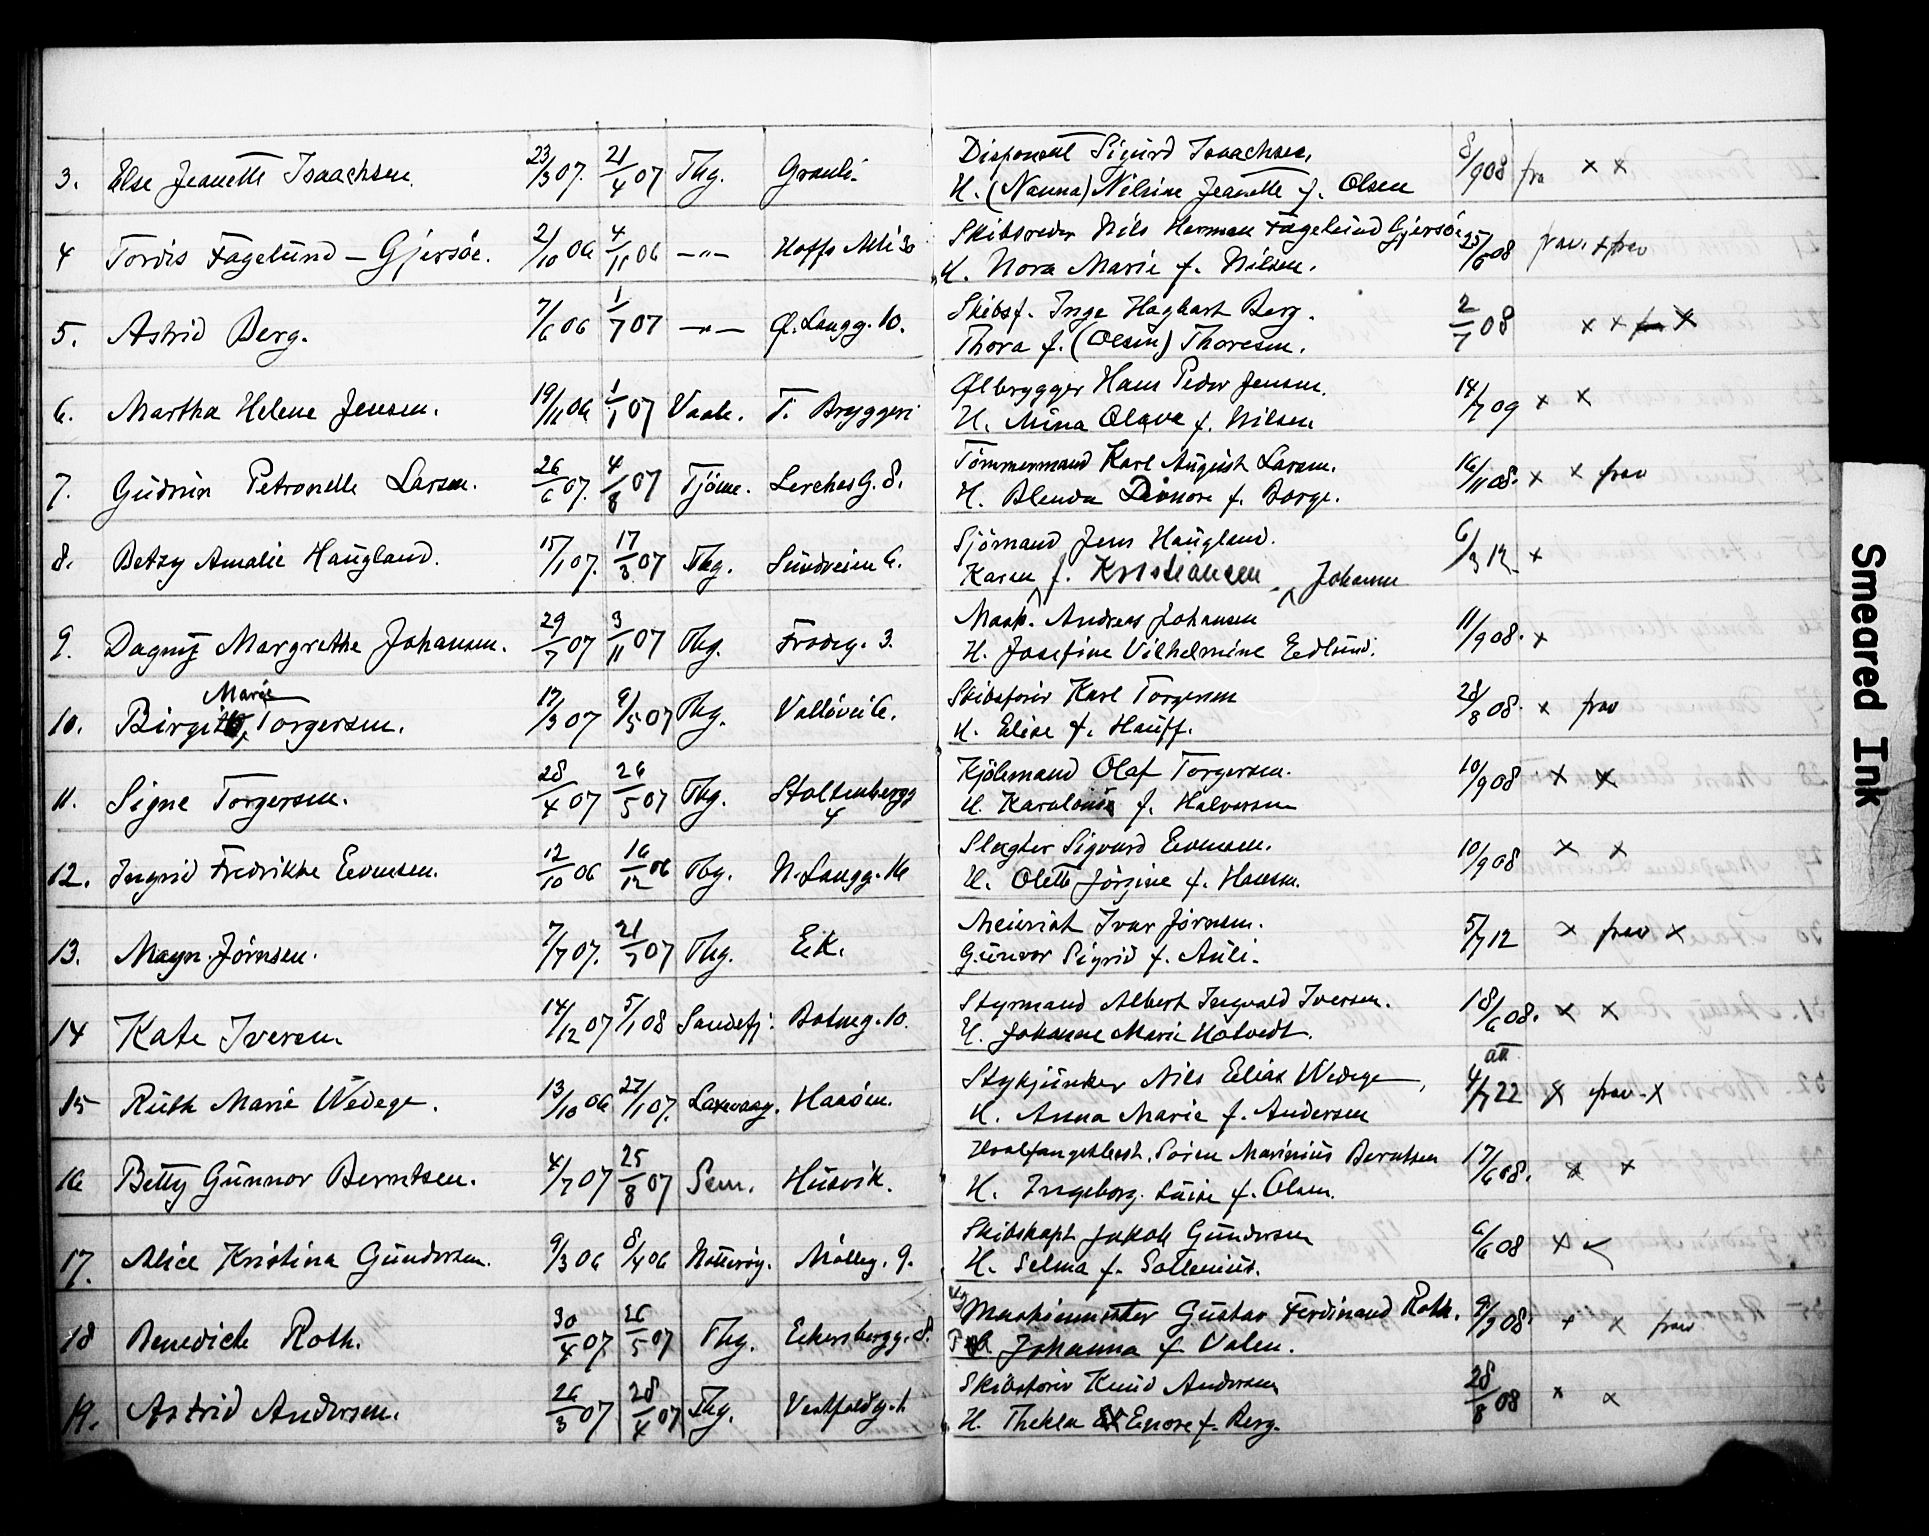 3. Else Jeanette Isaachsen. 23/3 07. 21/4 07 Tbg. Grauli. Disponent Sigurd Isaachsen, 8/9 08 fra x x
H. (Nanna) Nilsine Jeanette f. Olsen
4 Tordis Fagelund - Gjersöe. 21/10 06 4/11 06 —"— Skibsreder Nils Herman Fagelund Gjersöe 25/6 08 frav. x frav
H. Nora Marie f. Nilsen.
5. Astrid Berg. 7/6 06 1/7 07 —"— Ø. Langg. 10. Skibsf. Inge Hagbart Berg. 2/7 08 x x x
Thora f. (Olsen) Thoresen.
6. Martha Helene Jensen. 19/11 06 1/1 07 Vaale. T. Bryggeri Ølbrygger Hans Peder Jensen. 14/7 09 x x
H. Mina Olava f. Nilsen
7. Gudrun Petronelle Larsen. 26/6 07. 4/8 07 Tjöme. Lerches G. 8. Tömmermand Karl August Larsen. 16/11 08. x x frav
H. Blenda Dionore f. Borge.
8. Betzy Amalie Haugland. 15/1 07. 17/3 07 Tbg. Sundveien 6. Sjömand Jens Haugland. 6/3 12 x
Karen f. Kristiansen Johanne
9. Dagny Margrethe Johansen. 29/7 07 3/11 07 Tbg. Frodeg. 3. Mask. Andreas Johansen 11/9 08. x
H. Josefine Vilhelmine Edlund.
Marie
10. Birgit Torgersen. 17/3 07 9/5 07 Tbg. Vallöveien. Skibsförer Karl Torgersen 28/8 08. x frav
H. Elise f. Hauff.
11. Signe Torgersen. 28/4 07 26/5 07 Tbg. Stoltenbergg 4 Kjölemand Olaf Torgersen. 10/9 08 x x
H. Karolouise f. Halvorsen
12. Ingrid Fredrikke Evensen. 12/10 06 16/12 06 Tbg. N. Langg. 16 Slagter Sigvard Evensen. 10/9 08 x x
H. Olette Jörgine f. Hansen.
13. Mayn Jörnsen. 7/7 07. 21/7 07 Tbg. Eik. Meierist Ivar Jörnsen. 5/7 12 x frav x
Gunvor Sigrid f. Auli.
14 Kate Iversen. 14/12 07 5/1 08 Sandefj. Botneg. 10. Styrmand Albert Ingvald Iversen. 18/6 08. x x
H. Johanne Marie Hotvedt.
att.
15 Ruth Marie Wedege. 13/10 06 27/1 07. Laxevaag. Haaöen. Stykjunker Nils Elias Wedege, 4/7 22 x frav. x
H. Anna Marie f. Andersen
16 Betty Gunnor Berntsen. 4/7 07 25/8 07 Sem. Husvik. Hvalfangstbest. Sören Marinius Berntsen 17/6 08. x x
H. Ingeborg Luise f. Olsen.
17. Alice Kristina Gundersen. 9/3 06 8/4 06 Nötteröy. Mölleg. 9. Skibskapt Jakob Gundersen 6/6 08 x
H. Selma f. Sollenius.
18 Benedicte Roth. 30/4 07 26/5 07 Tbg. Eckersbergg. 8. Maskinmester Gustav Ferdinand Roth. 9/9 08. x x frav
Johanna f. Valen.
19. Astrid Andersen. 26/3 07 28/4 07 Tbg. Vestfoldg. 1 Skibsförer Knud Andersen 28/8 08 x x
H. Thekla Enore f. Berg.
Smeared Ink